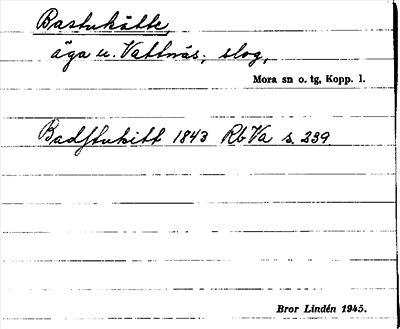 Bastukätte,
äga u. Vattnäs; slog,
Mora sn o. tg, Kopp. l.
Badstukitt 1843 Rb Va s. 239
Bror Lindén 1945.